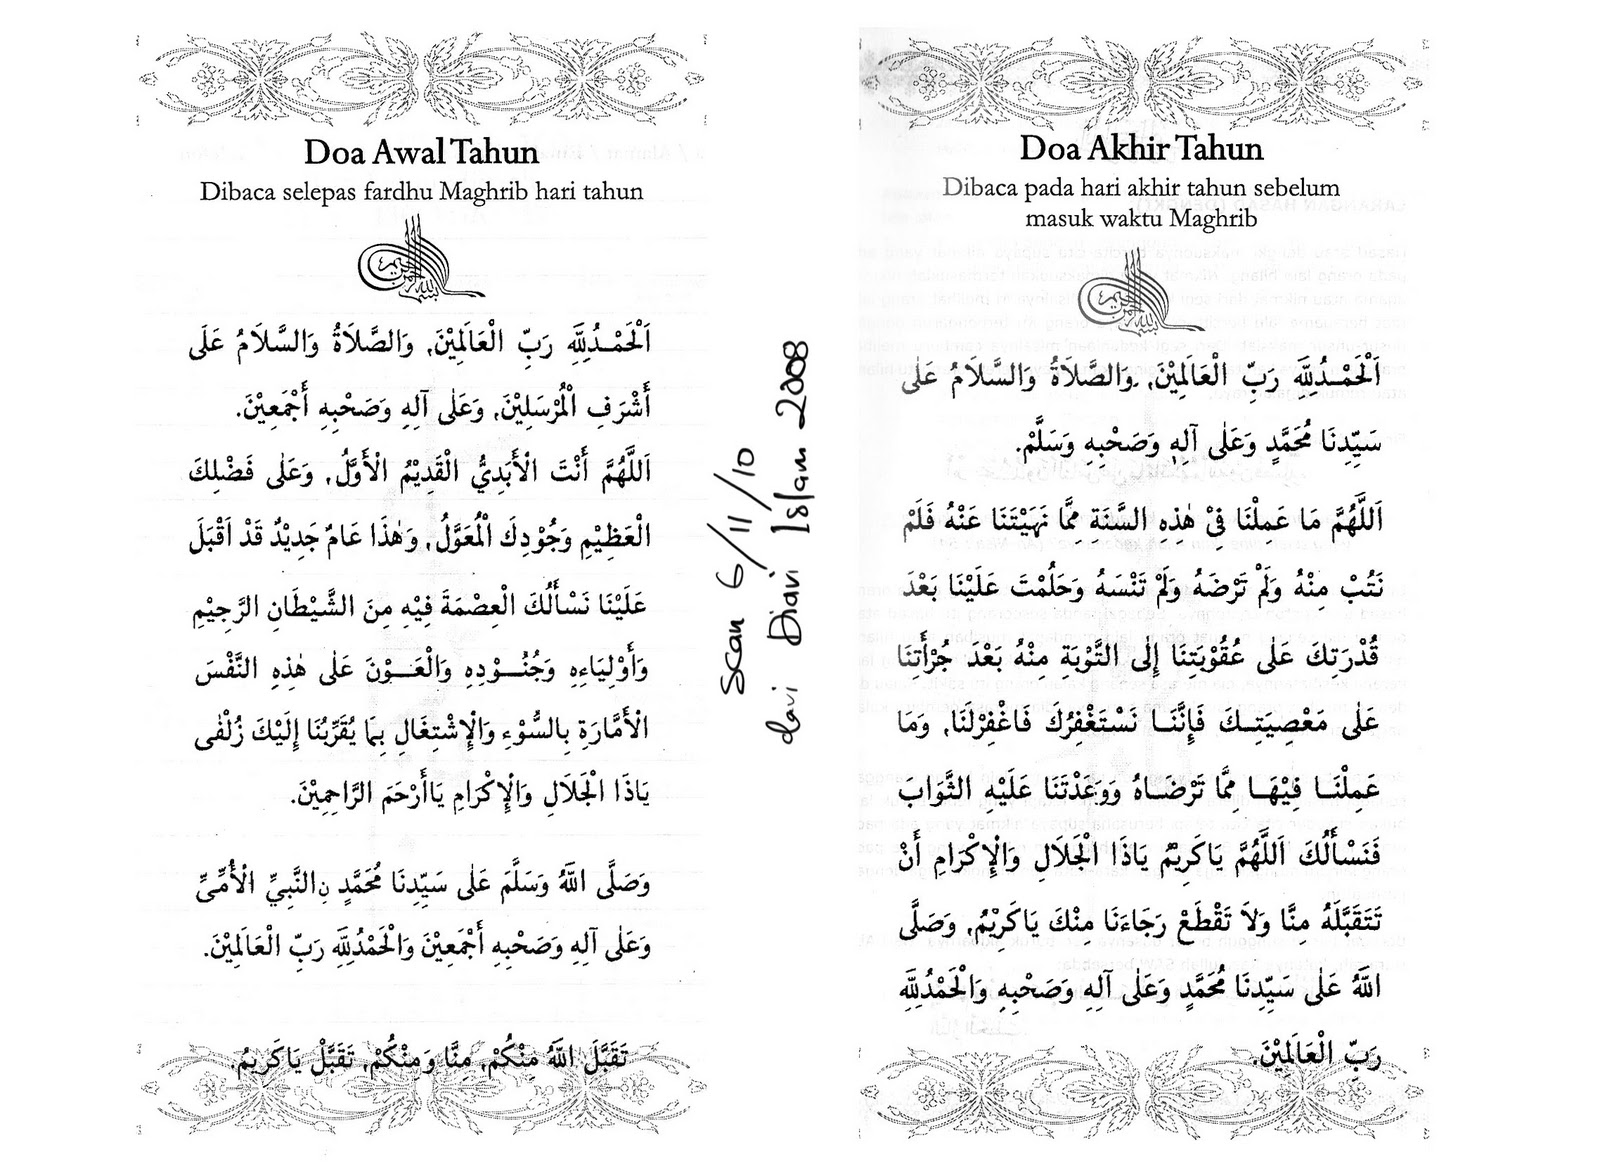 Doa Awal Tahun
Dibaca selepas fardhu Maghrib hari tahun
اَلْحَمْدُلِلَّهِ رَبِّ الْعَالَمِيْنَ, وَالصَّلَاةُ وَالسَّلَامُ عَلَى
أَشْرَفِ الْمُرْسَلِيْنَ, وَعَلٰى آلِهِ وَصَحْبِهِ أَجْمَعِيْنَ.
اَللَّهُمَّ أَنْتَ الْأَبَدِيُّ الْقَدِيْمُ الْأَوَّلُ, وَعَلٰى فَضْلِكَ
الْعَظِيْمِ وَجُوْدِكَ الْمُعَوَّلُ, وَهٰذَا عَامٌ جَدِيْدٌ قَدْ اَقْبَلَ
عَلَيْنَا نَسْأَلُكَ الْعِصْمَةَ فِيْهِ مِنَ الشَّيْطَانِ الرَّجِيْمِ
وَأَوْلِيَاءِهِ وَجُنُوْدِهِ وَالْعَوْنَ عَلٰى هٰذِهِ النَّفْسَ
الْأَمَّارَةِ بِالسُّوْءِ وَالْإِشْتِغَالِ بِمَا يُقَرِّبُنَا إِلَيْكَ زُلْفٰى
يَاذَا الْجَلَالِ وَالْإِكْرَامِ يَاأَرْحَمَ الرَّاحِمِيْنَ.
وَصَلَّى اللهُ وَسَلَّمَ عَلٰى سَيِّدِنَا مُحَمَّدٍ نِالنَّبِيِّ الْأُمِّيِّ
وَعَلٰى آلِهِ وَصَحْبِهِ أَجْمَعِيْنَ وَالْحَمْدُلِلَّهِ رَبِّ الْعَالَمِيْنَ.
تَقَبَّلَ اللهُ مِنْكُمْ, مِنَّا وَمِنْكُمْ, تَقَبَّلْ يَاكَرِيمُ.
Scan 6/11/10
dari Diari Islam 2008
Doa Akhir Tahun
Dibaca pada hari akhir tahun sebelum
masuk waktu Maghrib
اَلْحَمْدُلِلَّهِ رَبِّ الْعَالَمِيْنَ, وَالصَّلَاةُ وَالسَّلَامُ عَلٰى
سَيِّدِنَا مُحَمَّدٍ وَعَلٰى آلِهِ وَصَحْبِهِ وَسَلَّمْ.
اَللَّهُمَّ مَا عَمِلْنَا فِيْ هٰذِهِ السَّنَةِ مِمَّا نَهَيْتَنَا عَنْهُ فَلَمْ
نَتُبْ مِنْهُ وَلَمْ تَرْضَهُ وَلَمْ تَنْسَهُ وَحَلُمْتَ عَلَيْنَا بَعْدَ
قُدْرَتِكَ عَلٰى عُقُوْبَتِنَا إِلَى التَّوْبَةِ مِنْهُ بَعْدَ جُرْأَتِنَا
عَلٰى مَعْصِيَتِكَ فَإِنَّنَا نَسْتَغْفِرُكَ فَاغْفِرْلَنَا, وَمَا
عَمِلْنَا فِيْهَا مِمَّا تَرْضَاهُ وَوَعَدْتَنَا عَلَيْهِ الثَّوَابَ
فَنَسْأَلُكَ اَللَّهُمَّ يَاكَرِيْمُ يَاذَا الْجَلَالِ وَالْإِكْرَامِ أَنْ
تَتَقَبَّلَهُ مِنَّا وَلَا تَقْطَعْ رَجَاءَنَا مِنْكَ يَاكَرِيْمُ, وَصَلَّى
اللهُ عَلٰى سَيِّدِنَا مُحَمَّدٍ وَعَلٰى آلِهِ وَصَحْبِهِ وَالْحَمْدُلِلَّهِ
رَبِّ الْعَالَمِيْنَ.